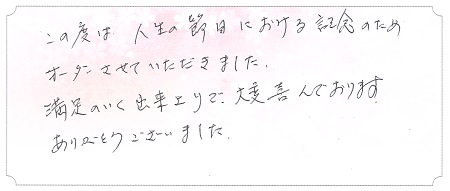 この度は 人生の節目における記念のため
オーダーさせていただきました.
満足のいく出来上りで、大変喜んでおります
ありがとうございました.